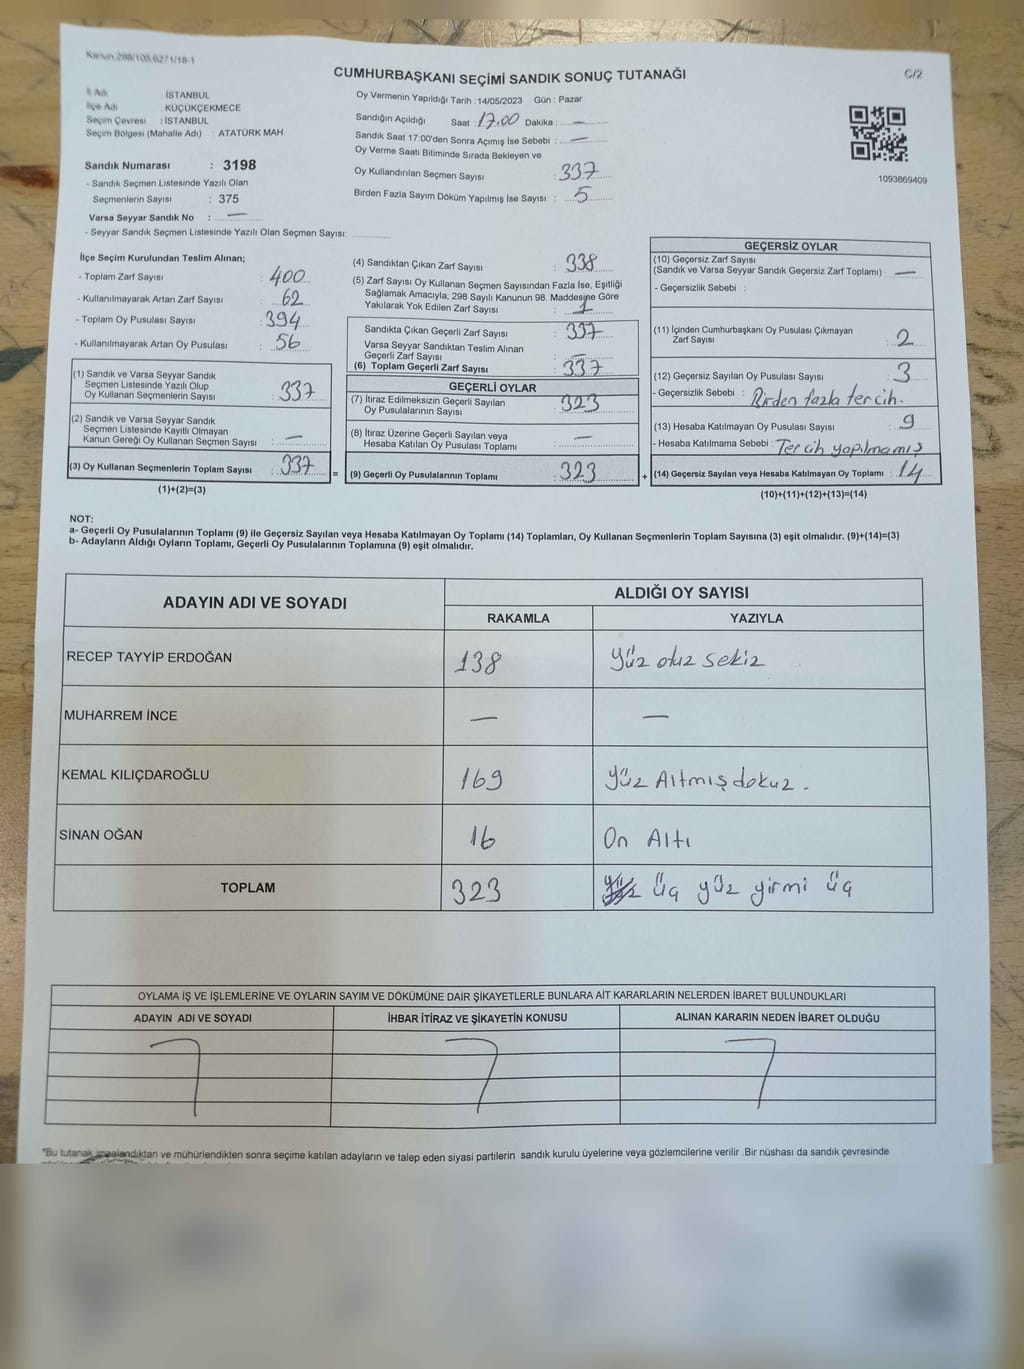 Kanun 298/105,6271/18-1
CUMHURBAŞKANI SEÇİMİ SANDIK SONUÇ TUTANAĞI
C/2
İl Adı : İSTANBUL
İlçe Adı : KÜÇÜKÇEKMECE
Seçim Çevresi : İSTANBUL
Seçim Bölgesi (Mahalle Adı) : ATATÜRK MAH.
Sandık Numarası : 3198
- Sandık Seçmen Listesinde Yazılı Olan
Seçmenlerin Sayısı : 375
Varsa Seyyar Sandık No : —
- Seyyar Sandık Seçmen Listesinde Yazılı Olan Seçmen Sayısı:
Oy Vermenin Yapıldığı Tarih : 14/05/2023 Gün : Pazar
Sandığın Açıldığı Saat : 17.00 Dakika : —
Sandık Saat 17:00'den Sonra Açımış İse Sebebi : —
Oy Verme Saati Bitiminde Sırada Bekleyen ve
Oy Kullandırılan Seçmen Sayısı : 337
Birden Fazla Sayım Döküm Yapılmış İse Sayısı : 5
1093869409
İlçe Seçim Kurulundan Teslim Alınan;
- Toplam Zarf Sayısı : 400
- Kullanılmayarak Artan Zarf Sayısı : 62
- Toplam Oy Pusulası Sayısı : 394
- Kullanılmayarak Artan Oy Pusulası : 56
(1) Sandık ve Varsa Seyyar Sandık
Seçmen Listesinde Yazılı Olup
Oy Kullanan Seçmenlerin Sayısı : 337
(2) Sandık ve Varsa Seyyar Sandık
Seçmen Listesinde Kayıtlı Olmayan
Kanun Gereği Oy Kullanan Seçmen Sayısı : —
(3) Oy Kullanan Seçmenlerin Toplam Sayısı : 337
(1)+(2)=(3)
=
(4) Sandıktan Çıkan Zarf Sayısı : 338
(5) Zarf Sayısı Oy Kullanan Seçmen Sayısından Fazla İse, Eşitliği
Sağlamak Amacıyla; 298 Sayılı Kanunun 98. Maddesine Göre
Yakılarak Yok Edilen Zarf Sayısı : 1
Sandıkta Çıkan Geçerli Zarf Sayısı : 337
Varsa Seyyar Sandıktan Teslim Alınan
Geçerli Zarf Sayısı : —
(6) Toplam Geçerli Zarf Sayısı : 337
GEÇERLİ OYLAR
(7) İtiraz Edilmeksizin Geçerli Sayılan
Oy Pusulalarının Sayısı : 323
(8) İtiraz Üzerine Geçerli Sayılan veya
Hesaba Katılan Oy Pusulası Toplamı : —
(9) Geçerli Oy Pusulalarının Toplamı : 323
+
GEÇERSİZ OYLAR
(10) Geçersiz Zarf Sayısı
(Sandık ve Varsa Seyyar Sandık Geçersiz Zarf Toplamı) : —
- Geçersizlik Sebebi :
(11) İçinden Cumhurbaşkanı Oy Pusulası Çıkmayan
Zarf Sayısı : 2
(12) Geçersiz Sayılan Oy Pusulası Sayısı : 3
- Geçersizlik Sebebi : Birden fazla tercih.
(13) Hesaba Katılmayan Oy Pusulası Sayısı : 9
- Hesaba Katılmama Sebebi : Tercih yapılmamış
(14) Geçersiz Sayılan veya Hesaba Katılmayan Oy Toplamı : 14
(10)+(11)+(12)+(13)=(14)
NOT:
a- Geçerli Oy Pusulalarının Toplamı (9) ile Geçersiz Sayılan veya Hesaba Katılmayan Oy Toplamı (14) Toplamları, Oy Kullanan Seçmenlerin Toplam Sayısına (3) eşit olmalıdır. (9)+(14)=(3)
b- Adayların Aldığı Oyların Toplamı, Geçerli Oy Pusulalarının Toplamına (9) eşit olmalıdır.
ADAYIN ADI VE SOYADI
ALDIĞI OY SAYISI
RAKAMLA YAZIYLA
RECEP TAYYİP ERDOĞAN 138 Yüz otuz sekiz
MUHARREM İNCE — —
KEMAL KILIÇDAROĞLU 169 Yüz Altmış dokuz.
SİNAN OĞAN 16 On Altı
TOPLAM 323 Üç yüz yirmi üç
OYLAMA İŞ VE İŞLEMLERİNE VE OYLARIN SAYIM VE DÖKÜMÜNE DAİR ŞİKAYETLERLE BUNLARA AİT KARARLARIN NELERDEN İBARET BULUNDUKLARI
ADAYIN ADI VE SOYADI İHBAR İTİRAZ VE ŞİKAYETİN KONUSU ALINAN KARARIN NEDEN İBARET OLDUĞU
*Bu tutanak imzalandıktan ve mühürlendikten sonra seçime katılan adayların ve talep eden siyasi partilerin sandık kurulu üyelerine veya gözlemcilerine verilir .Bir nüshası da sandık çevresinde